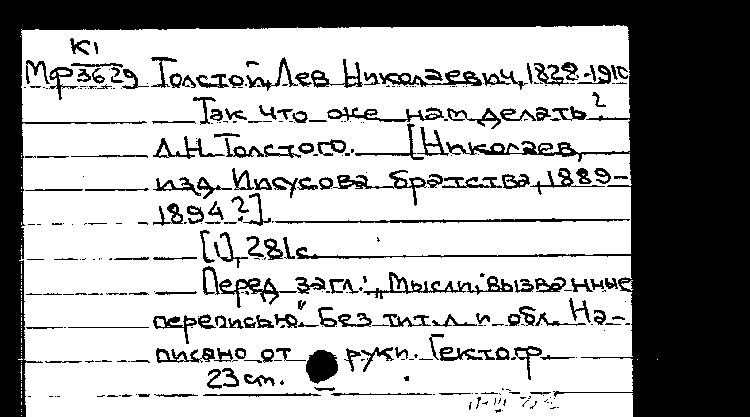 К1
Мф3629 Толстой, Лев Николаевич, 1828-1910
Так что же нам делать?
Л.Н.Толстого. [Николаев,
изд. Иисусова братства, 1889-
1894?].
[1], 281с.
Перед загл.: „Мысли, вызванные
переписью." Без тит.л. и обл. На-
писано от руки. Гектогр.
23cm.